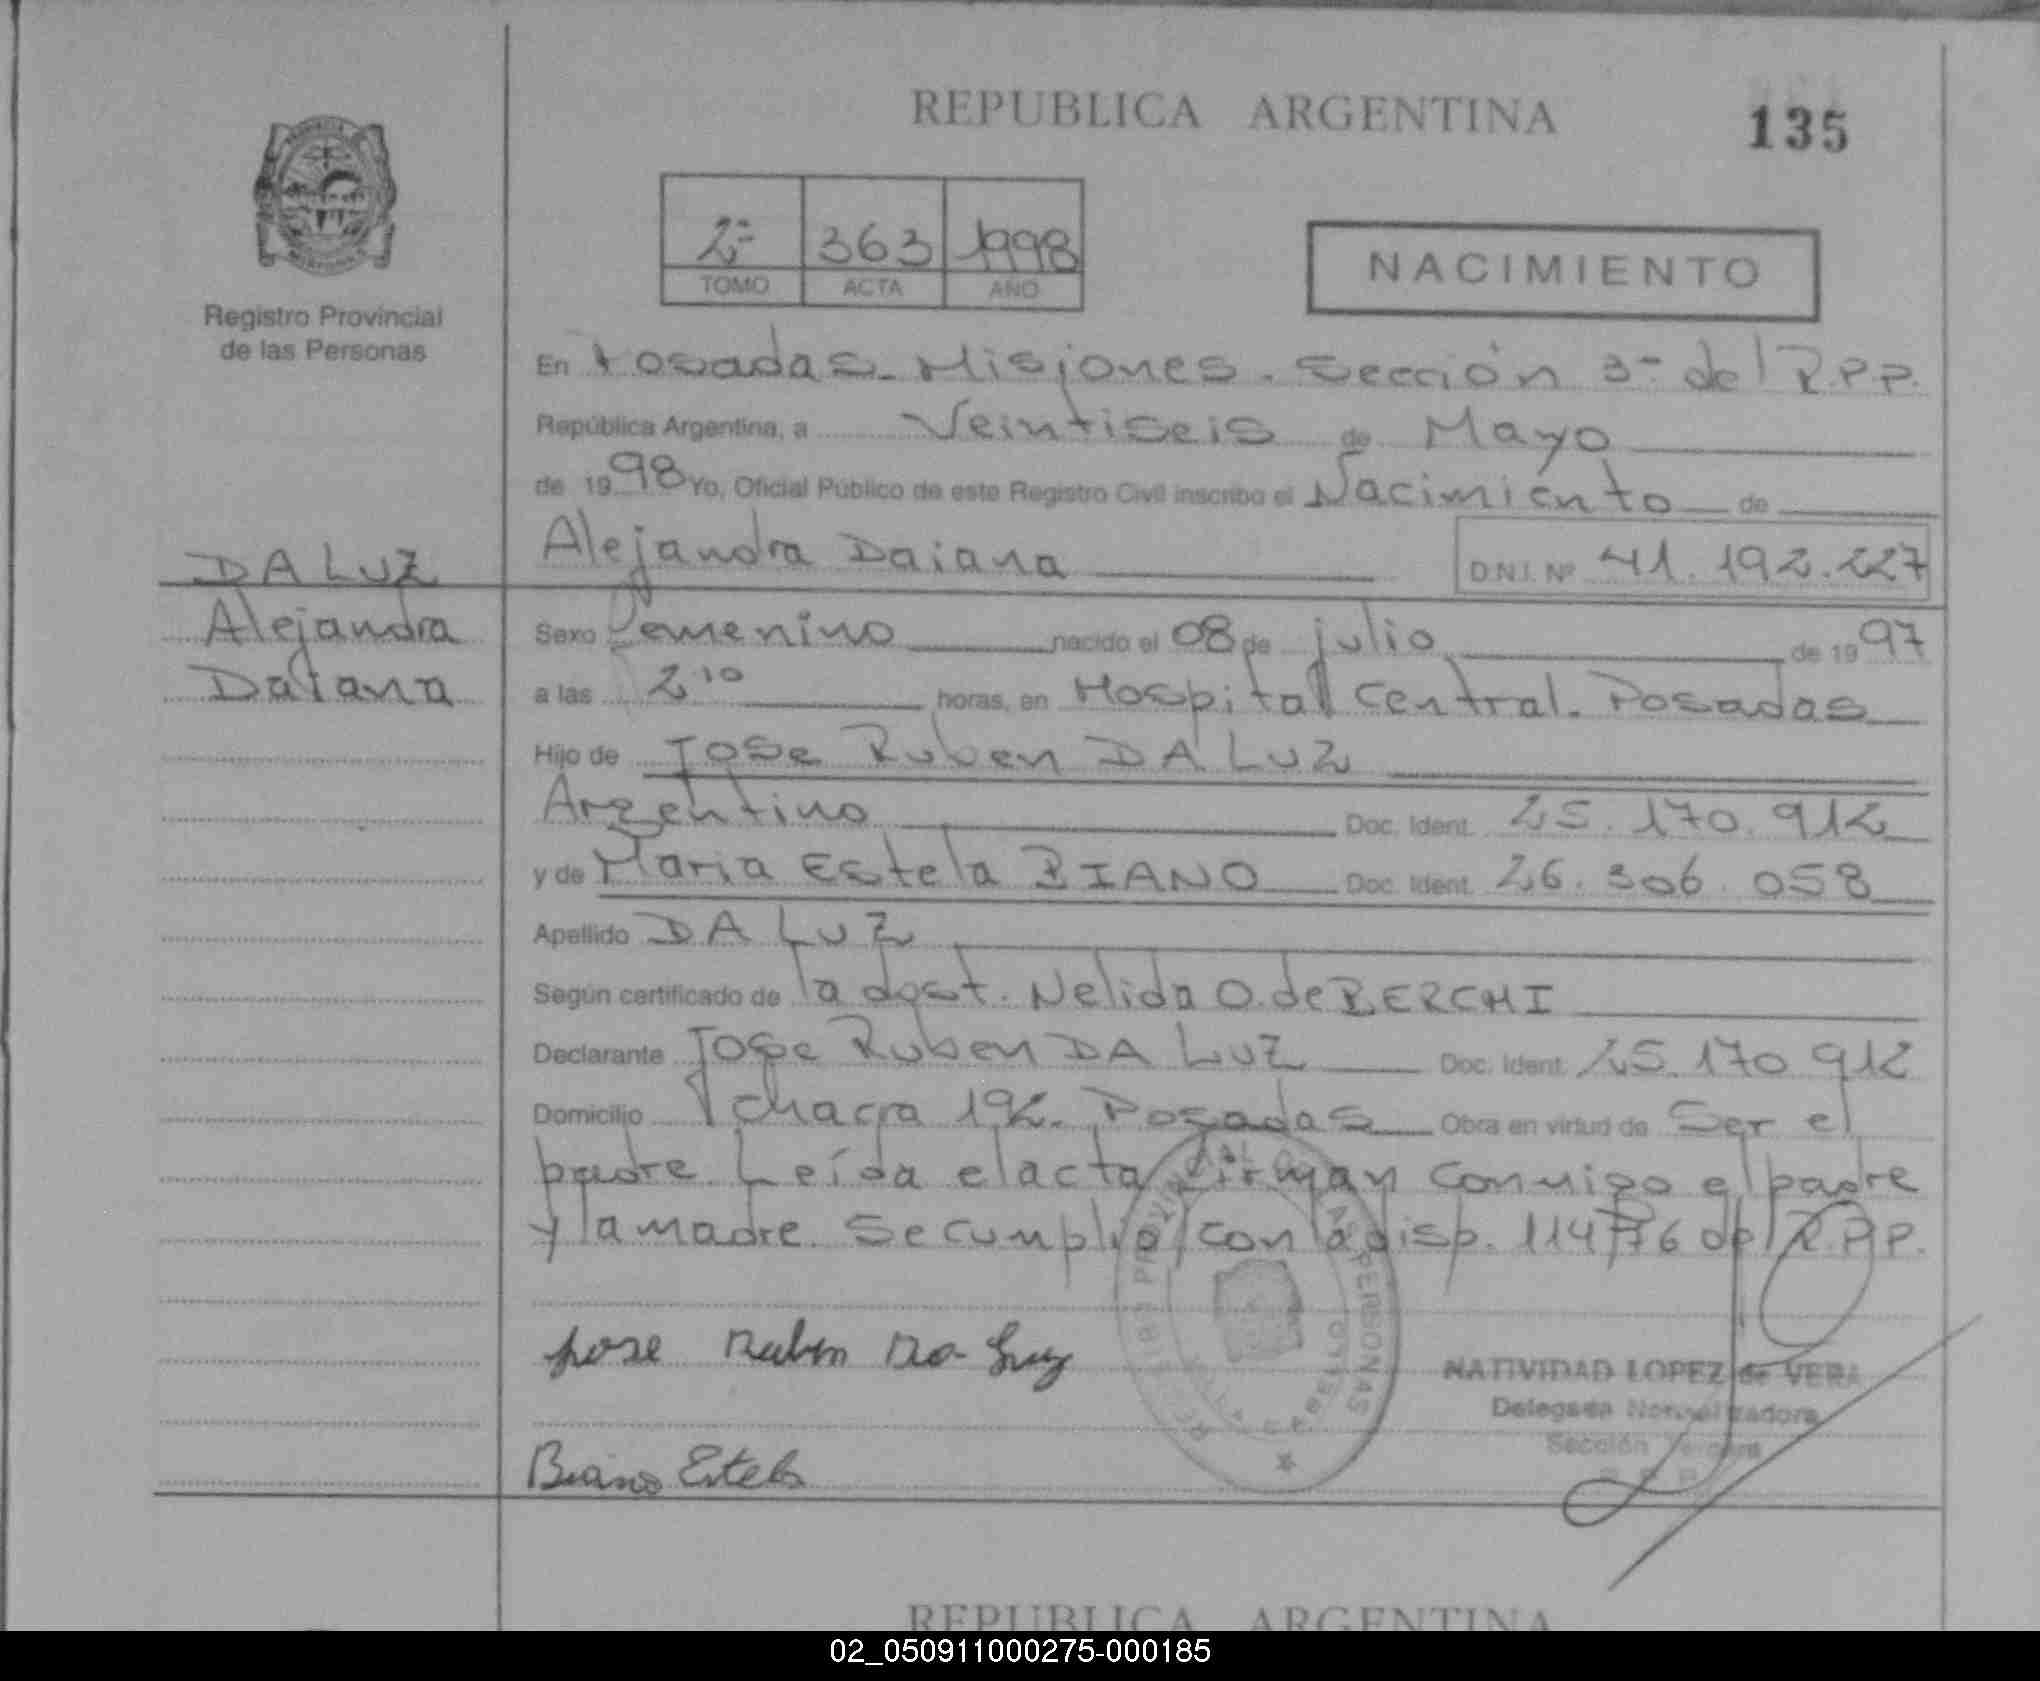 REPUBLICA ARGENTINA
135
2º 363 1998
TOMO ACTA AÑO
NACIMIENTO
Registro Provincial
de las Personas
En Posadas - Misiones. Sección 3º del R.P.P.
República Argentina, a Veintiseis de Mayo
de 1998 Yo, Oficial Público de este Registro Civil inscribo el Nacimiento de
Alejandra Daiana D.N.I. Nº 41.192.227
DA LUZ
Alejandra
Daiana
Sexo Femenino nacido el 08 de julio de 1997
a las 2¹⁰ horas, en Hospital Central. Posadas
Hijo de Jose Ruben DA LUZ
Argentino Doc. Ident. 25.170.912
y de Maria Estela BIANO Doc. Ident. 26.306.058
Apellido DA LUZ
Según certificado de la dost. Nelida O. de BERCHI
Declarante Jose Ruben DA LUZ Doc. Ident. 25.170 912
Domicilio chacra 192. Posadas Obra en virtud de Ser el
padre. Leída el acta firman conmigo el padre
y la madre. Se cumplió con la disp. 114/76 del R.P.P.
Jose Ruben Da Luz
PERSONAS
NATIVIDAD LOPEZ de VERA
Delegada Normalizadora
Sección Tercera
R.P.P.
Biano Estela
REPUBLICA ARGENTINA
02_050911000275-000185